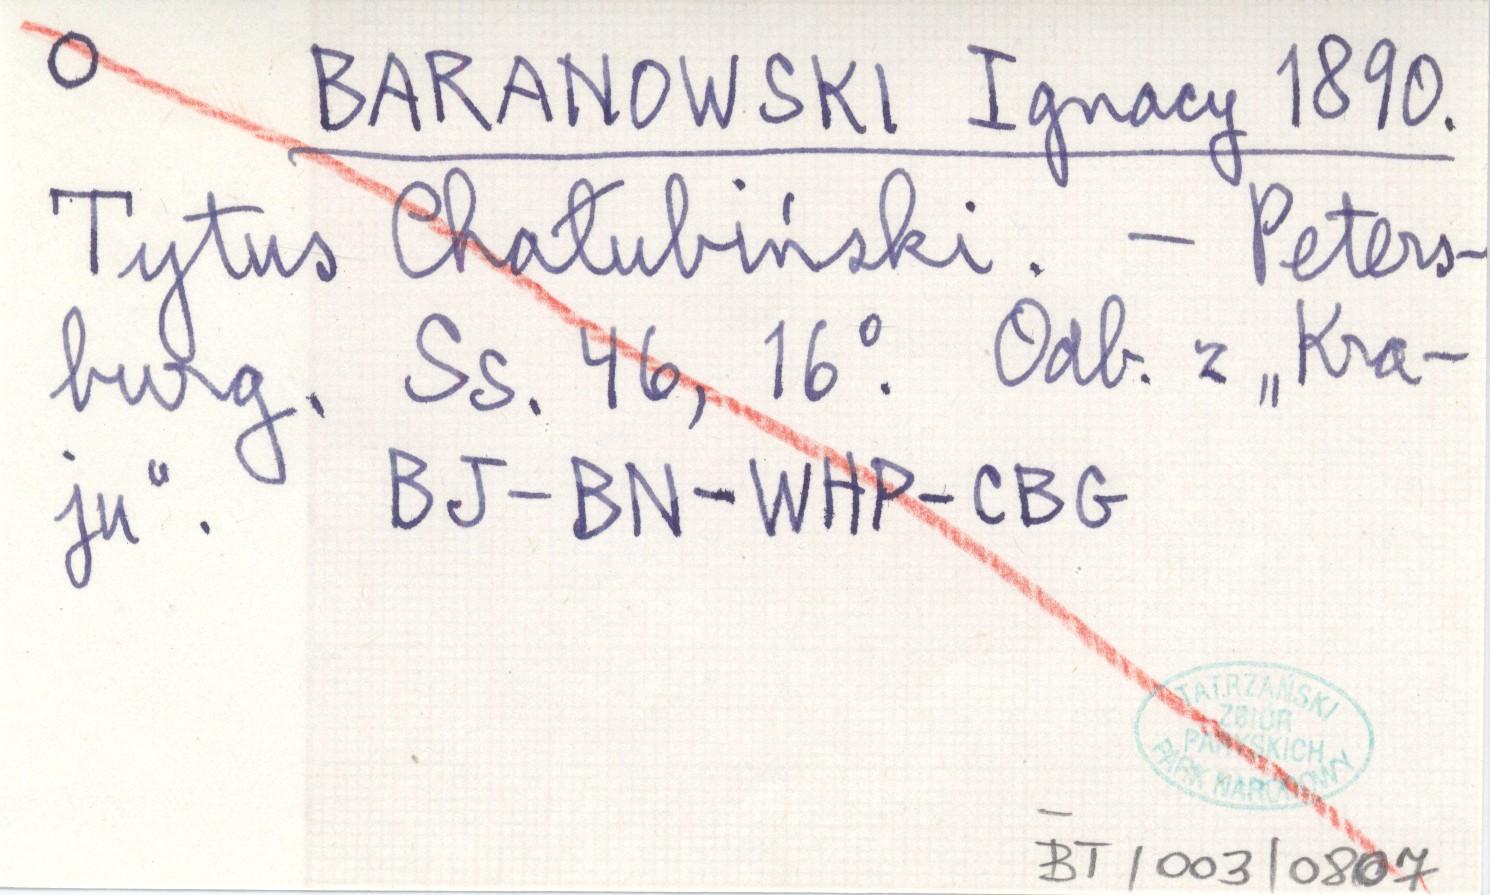 O BARANOWSKI Ignacy 1890.
Tytus Chałubiński. — Peters-
burg. Ss. 46, 16°. Odb. z „Kra-
ju“. BJ-BN-WHP-CBG
TATRZAŃSKI
ZBIÓR
PARYSKICH
PARK NARODOWY
BT/003/0807